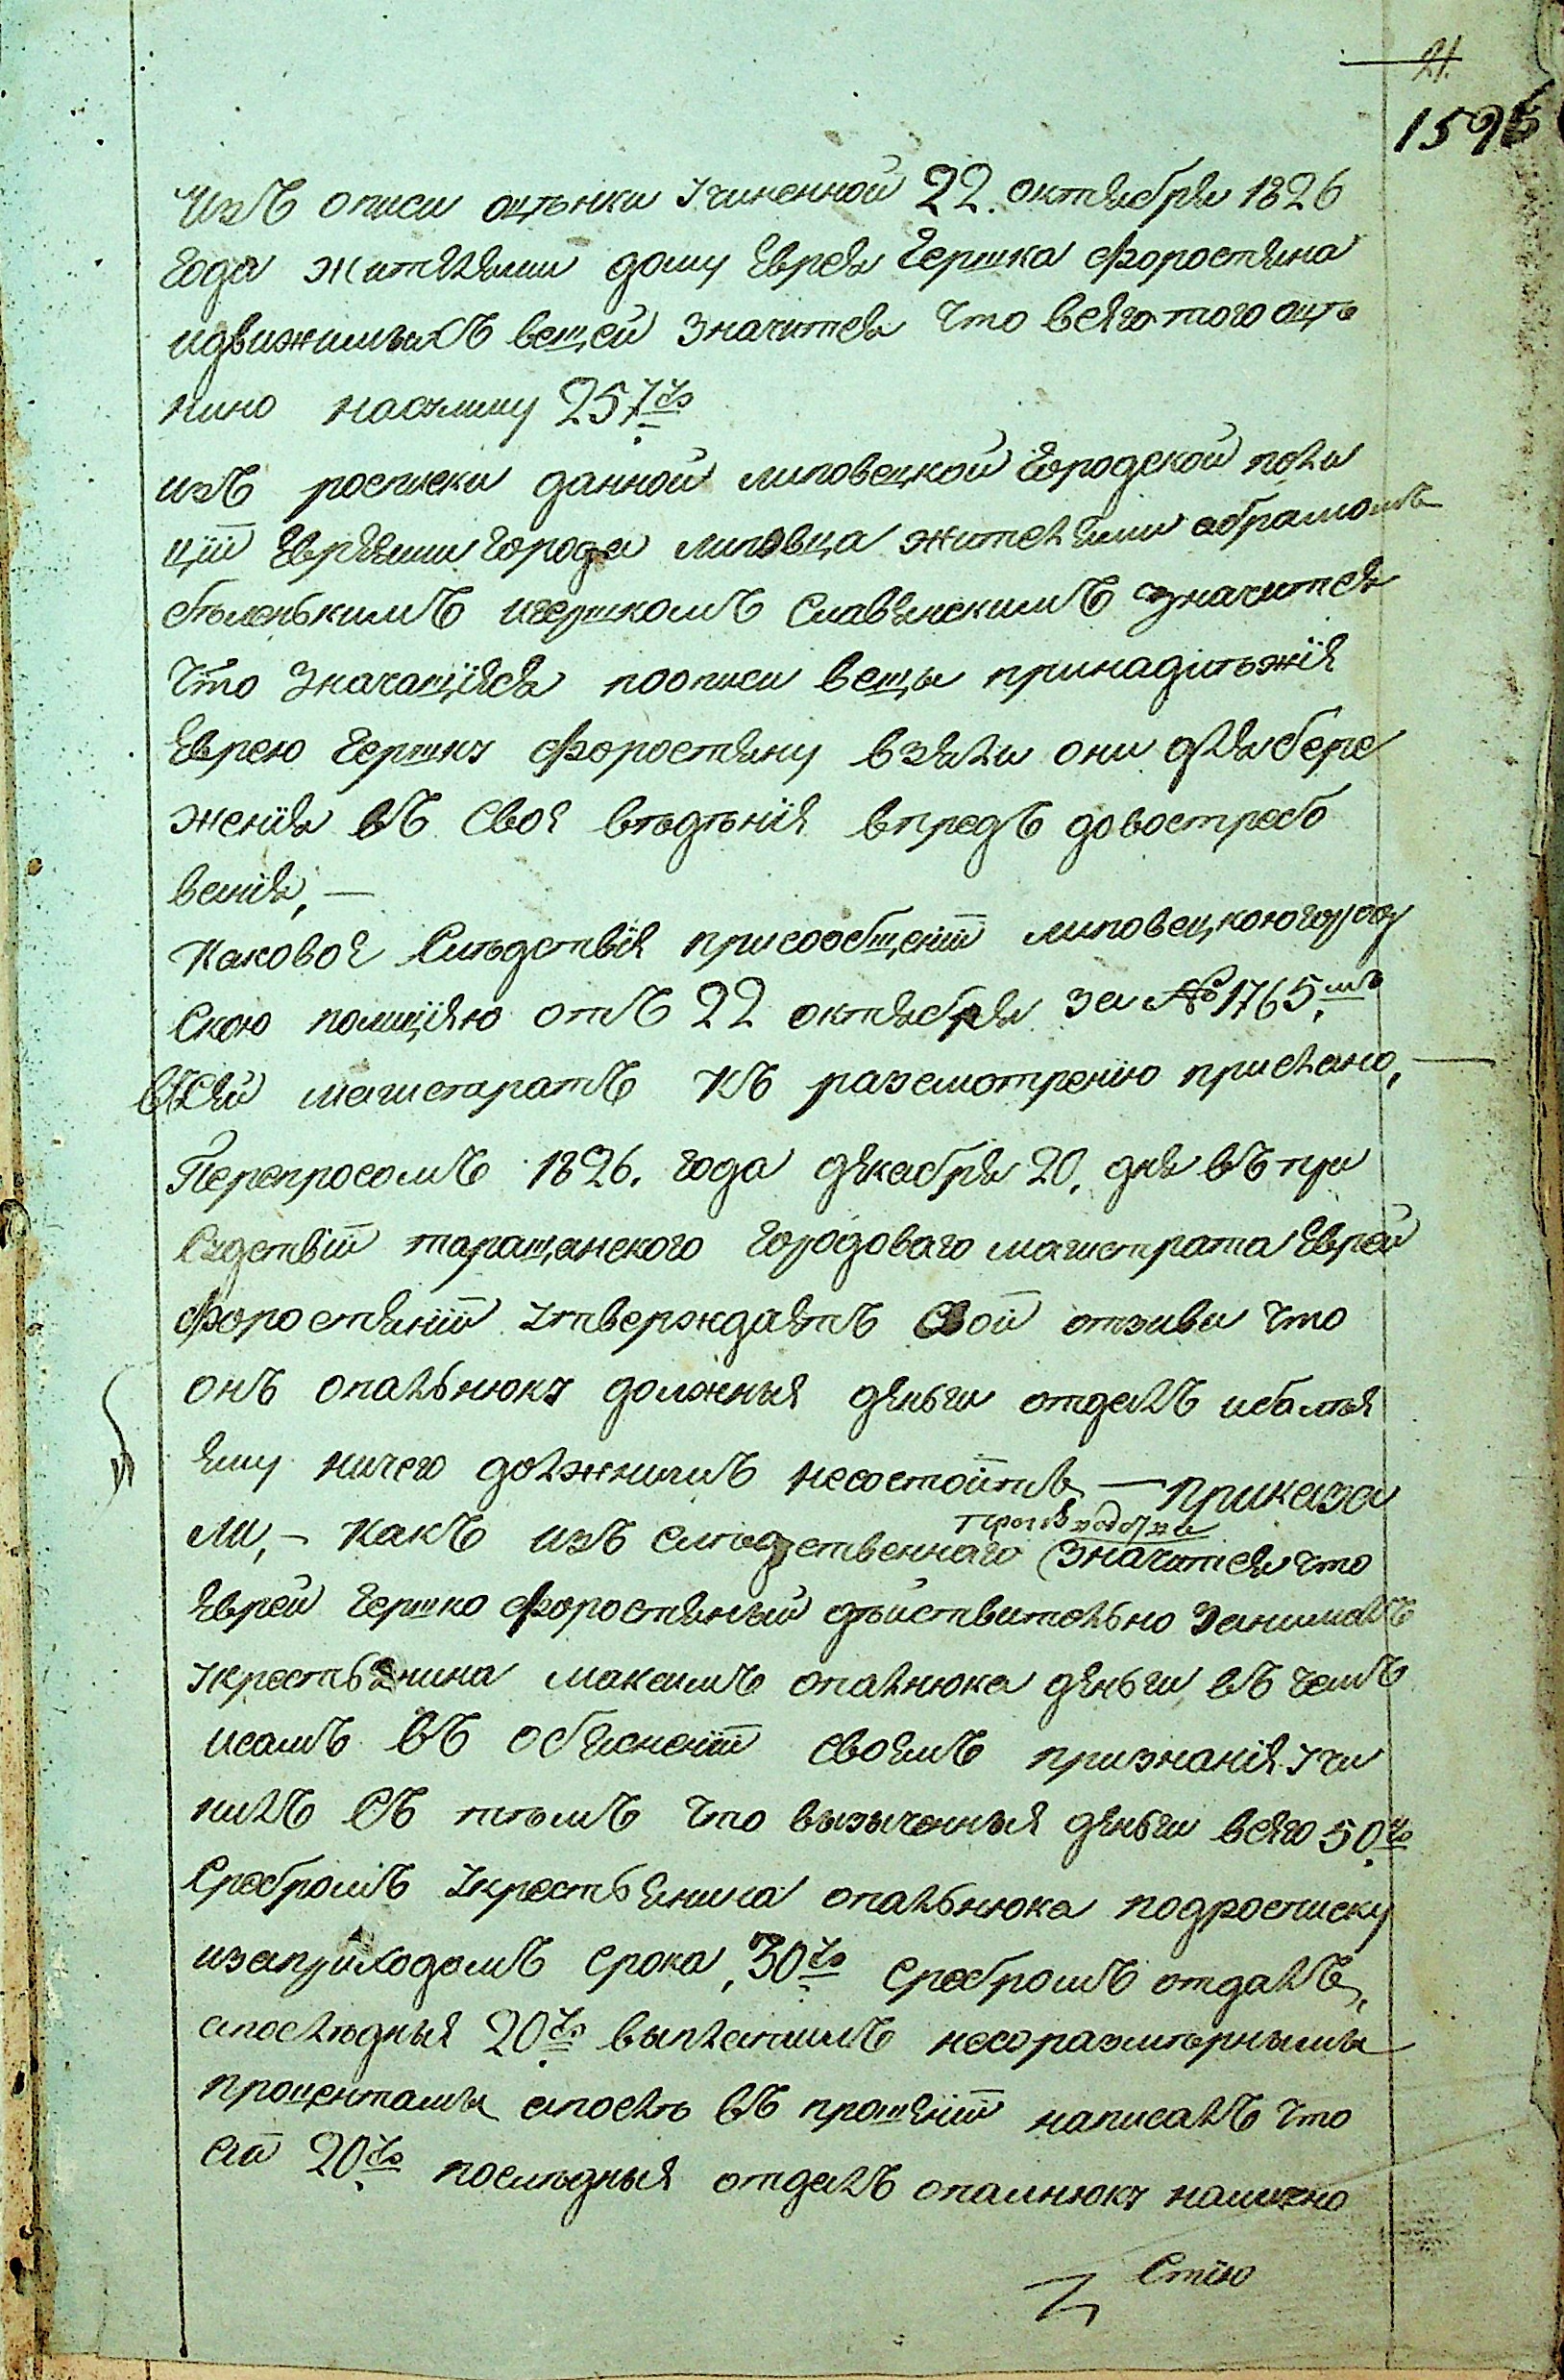 21.
1596
Изъ описи оцѣнки учиненной 22. октября 1826
года жителями дому Еврея Гершка Форостяна
идвижимыхъ вещей значится что всего того оцѣ
нино насумму 257 ру
изъ росписки данной липовецкой городской поли
ціи Евреями города липовца жителями абрамомъ
бѣленькимъ игершкомъ Славянскимъ значится
Что значащіяся поописи вещы принадлѣжія
Еврею Гершку Форостяну взяли они длясбере
женія въ своя вѣдѣнія впредъ довостребо
ванія, —
Каковоя Слѣдствія присообщеніи липовецкоюгород
скою полиціяю отъ 22 октября за №1765.мъ
въсей магистаратъ къ разсмотренію прислано, —
Перепросомъ 1826. года декабря 20. дня въпри
судствіи таращанского городоваго магистрата Еврей
Форостяній утверждаятъ свои отзивы что
онъ опальнюку должныя деньги отдалъ иболѣя
ему ничего должнимъ несостоитъ — приказа
ли, — какъ изъ слѣдственнаго
производства
значится что
Еврей Гершко Форостяный дѣйствительно занималъ
укрестьянина максима опалнюка деньги, въ чемъ
исамъ въ обясненіи своемъ признанія учи
нилъ съ тѣмъ что вызыченныя деньги всего 50 ру
Сребромъ укрестьянина опальнюка подросписку
изаприходомъ срока, 30 ру Сребромъ отдалъ,
апослѣдныя 20 ру выплатилъ несоразмѣрнымы
процентамы апослѣ въ прошеніи написалъ что
сіи 20 ру послѣдныя отдалъ опалнюку налично
Стію